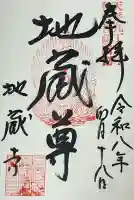 奉拝
令和八年
四月十八日
地蔵尊
地蔵寺